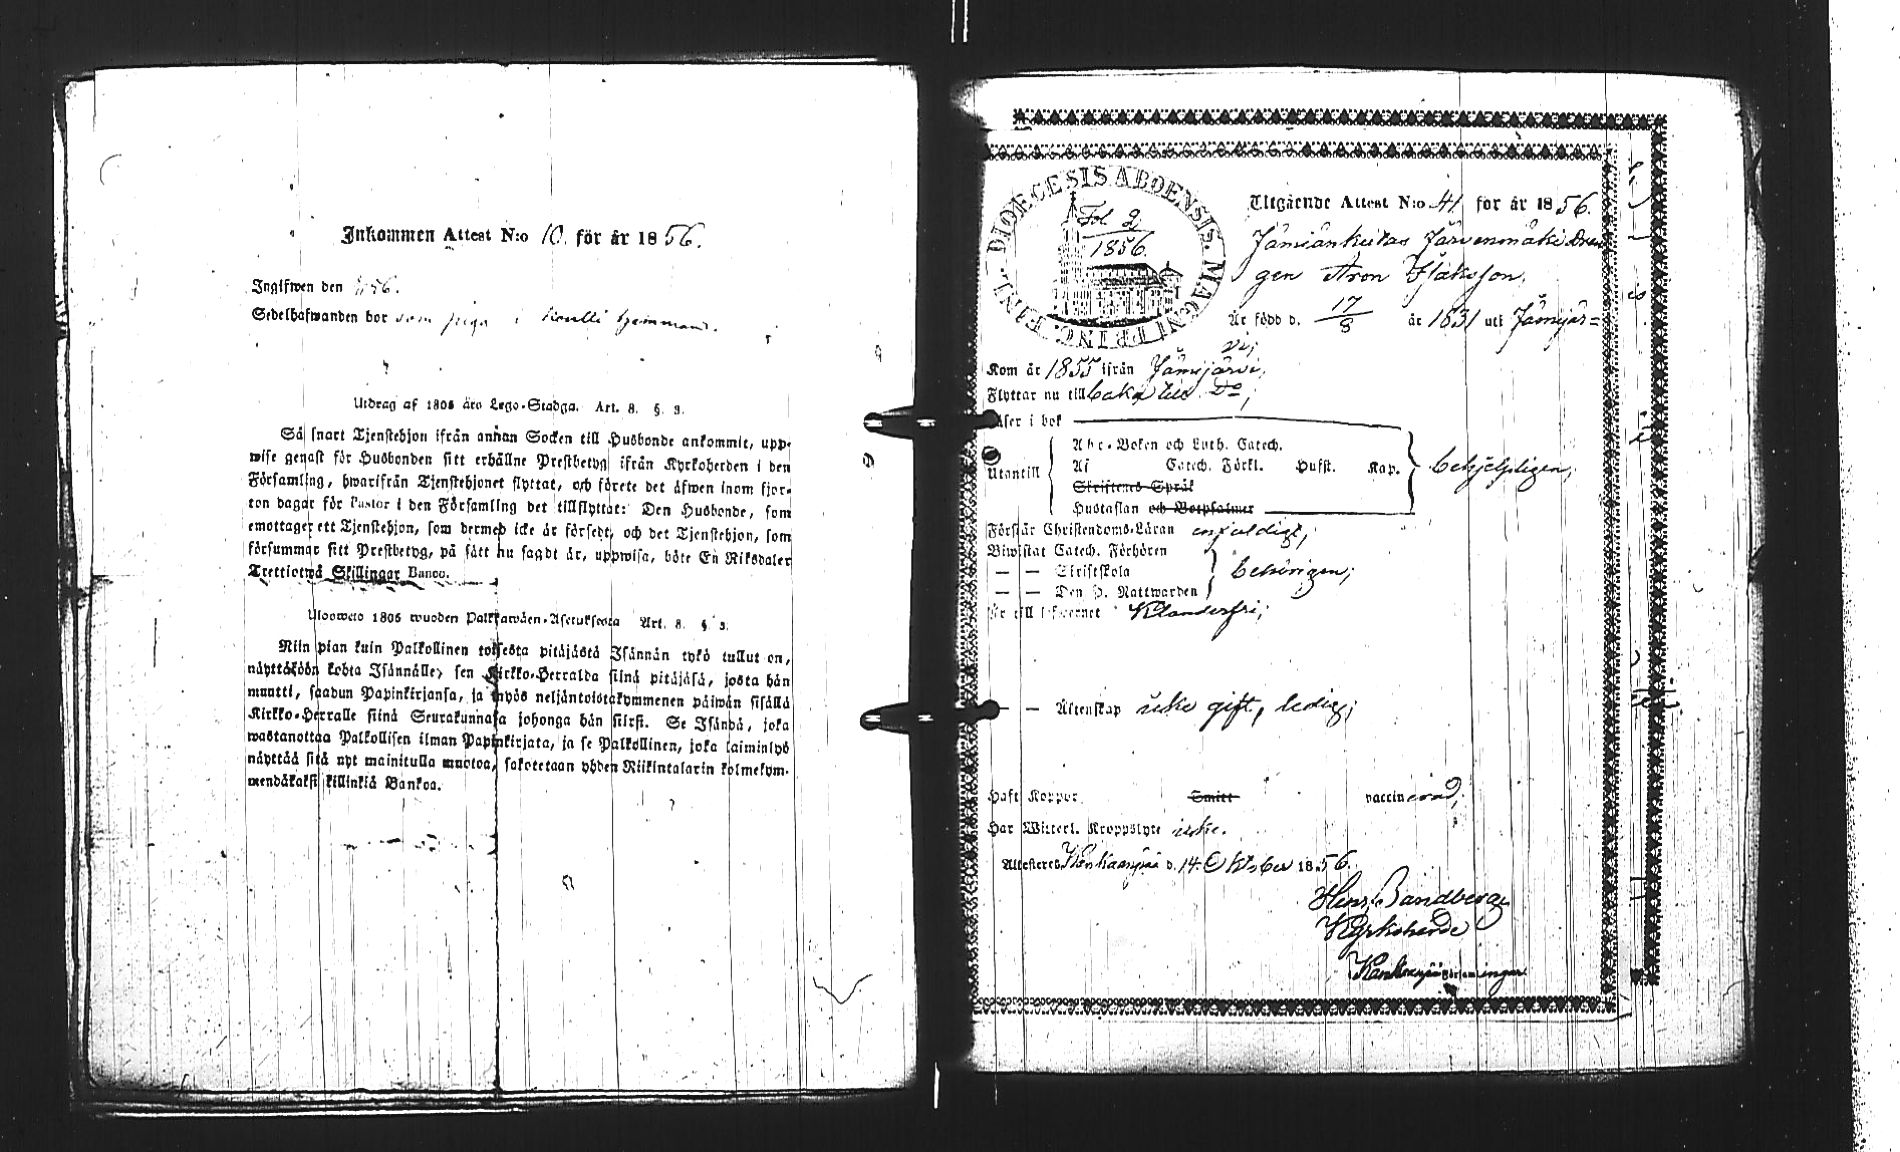 Inkommen Attest N:o 10. för år 1856.
Ingifwen den 56.
Sedelhafwanden bor som piga i hemman.
Utdrag af 1805 års Lego-Stadga. Art. 8. §. 3.
Så snart Tjenstehjon ifrån annan Socken till Husbonde ankommit, upp-
wise genast för Husbonden sitt erhållne Prestbetyg ifrån Kyrkoherden i den
Församling, hwarifrån Tjenstehjonet flyttat, och förete det äfwen inom fjor-
ton dagar för Pastor i den Församling det tillflyttat: Den Husbonde, som
emottager ett Tjenstehjon, som dermed icke är försedt, och det Tjenstehjon, som
försummar sitt Prestbetyg, på sätt nu sagdt är, uppwisa, böte En Riksdaler
Trettiotwå Skillingar Banco.
Uloosweto 1805 wuoden Palkkawäen-Asetuksesta Art. 8. § 3.
Niin pian kuin Palkollinen toisesta pitäjästä Isännän tykö tullut on,
näyttäköön kohta Isännälle, sen Kirkko-Herralda siinä pitäjäsä, josta hän
muutti, saadun Papinkirjansa, ja myös neljäntoistakymmenen päiwän sisällä
Kirkko-Herralle siinä Seurakunnasa johonga hän siirsi. Se Isändä, joka
wastanottaa Palkollisen ilman Papinkirjata, ja se Palkollinen, joka laiminlyö
näyttää sitä nyt mainitulla muotoa, sakotetaan yhden Riikintalarin kolmekym-
mendäkaksi killinkiä Bankoa.
DIOECESIS ABOENSIS. MAGNI PRINC. FINL.
Fol 2
1856.
Utgående Attest N:o 41. för år 1856.
Jämiänkeitas Järvenmäki Dren
gen Aron Isaksson,
Är född d. 17/8 år 1831 uti Jämijär=
vi;
Kom år 1855 ifrån Jämijärvi,
Flyttar nu till baka till Do;
Läser i bok
Abc-Boken och Luth. Catech.
Utantill Af Catech. Förkl. Hufst. Kap. behjelpligen;
Skriftenes Språk
Hustaflan och Botpsalmer
Förstår Christendoms-Läran enfaldigt;
Biwistat Catech. Förhören
— — Skriftskola behörigen;
— — Den H. Nattwarden
Är till lefwernet Klanderfri;
— — Äktenskap icke gift, ledig;
Haft Koppor Smitt vaccinerad;
Har Witterl. Kroppslyte icke.
Attesteras Kankaanpää d. 14. Oktober 1856.
Henr. Sandberg
Kyrkoherde
Kankaanpää Församlingar